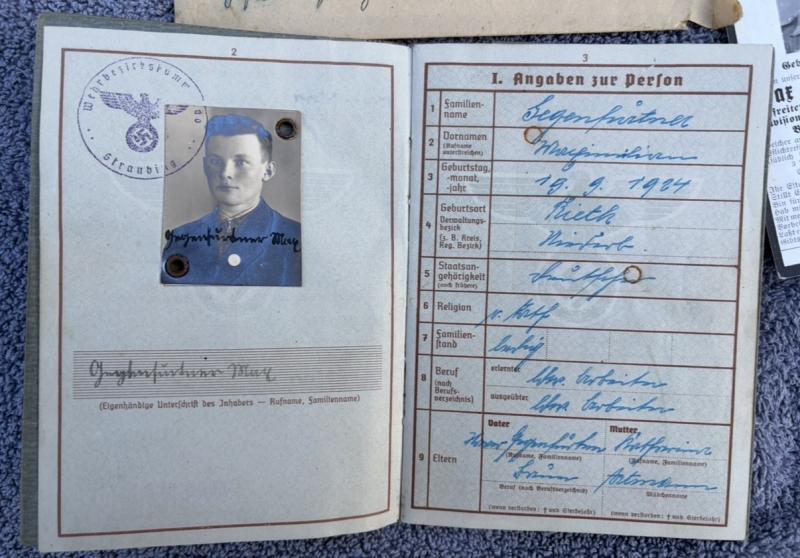 2
Wehrbezirkskomm
Straubing
Gegenfurtner Max
Gegenfurtner Max
(Eigenhändige Unterschrift des Inhabers — Rufname, Familienname)
3
I. Angaben zur Person
1 Familien-
name
Gegenfurtner
2 Vornamen
(Rufname
unterstreichen)
Maximilian
3 Geburtstag,
-monat,
-jahr
19. 9. 1924
4 Geburtsort
Verwaltungs-
bezirk
(z. B. Kreis,
Reg. Bezirk)
Rieth
Niederb.
5 Staatsan-
gehörigkeit
(auch frühere)
6 Religion
r. kath
7 Familien-
stand
ledig
8 Beruf
(nach
Berufs-
verzeichnis)
erlernter
ldw. Arbeiter
ausgeübter
ldw. Arbeiter
9 Eltern
Vater
Mutter
Gegenfurtner
(Rufname, Familienname)
(Rufname, Familienname)
Beruf (nach Berufsverzeichnis)
Mädchenname
(wenn verstorben: † und Sterbejahr)
(wenn verstorben: † und Sterbejahr)